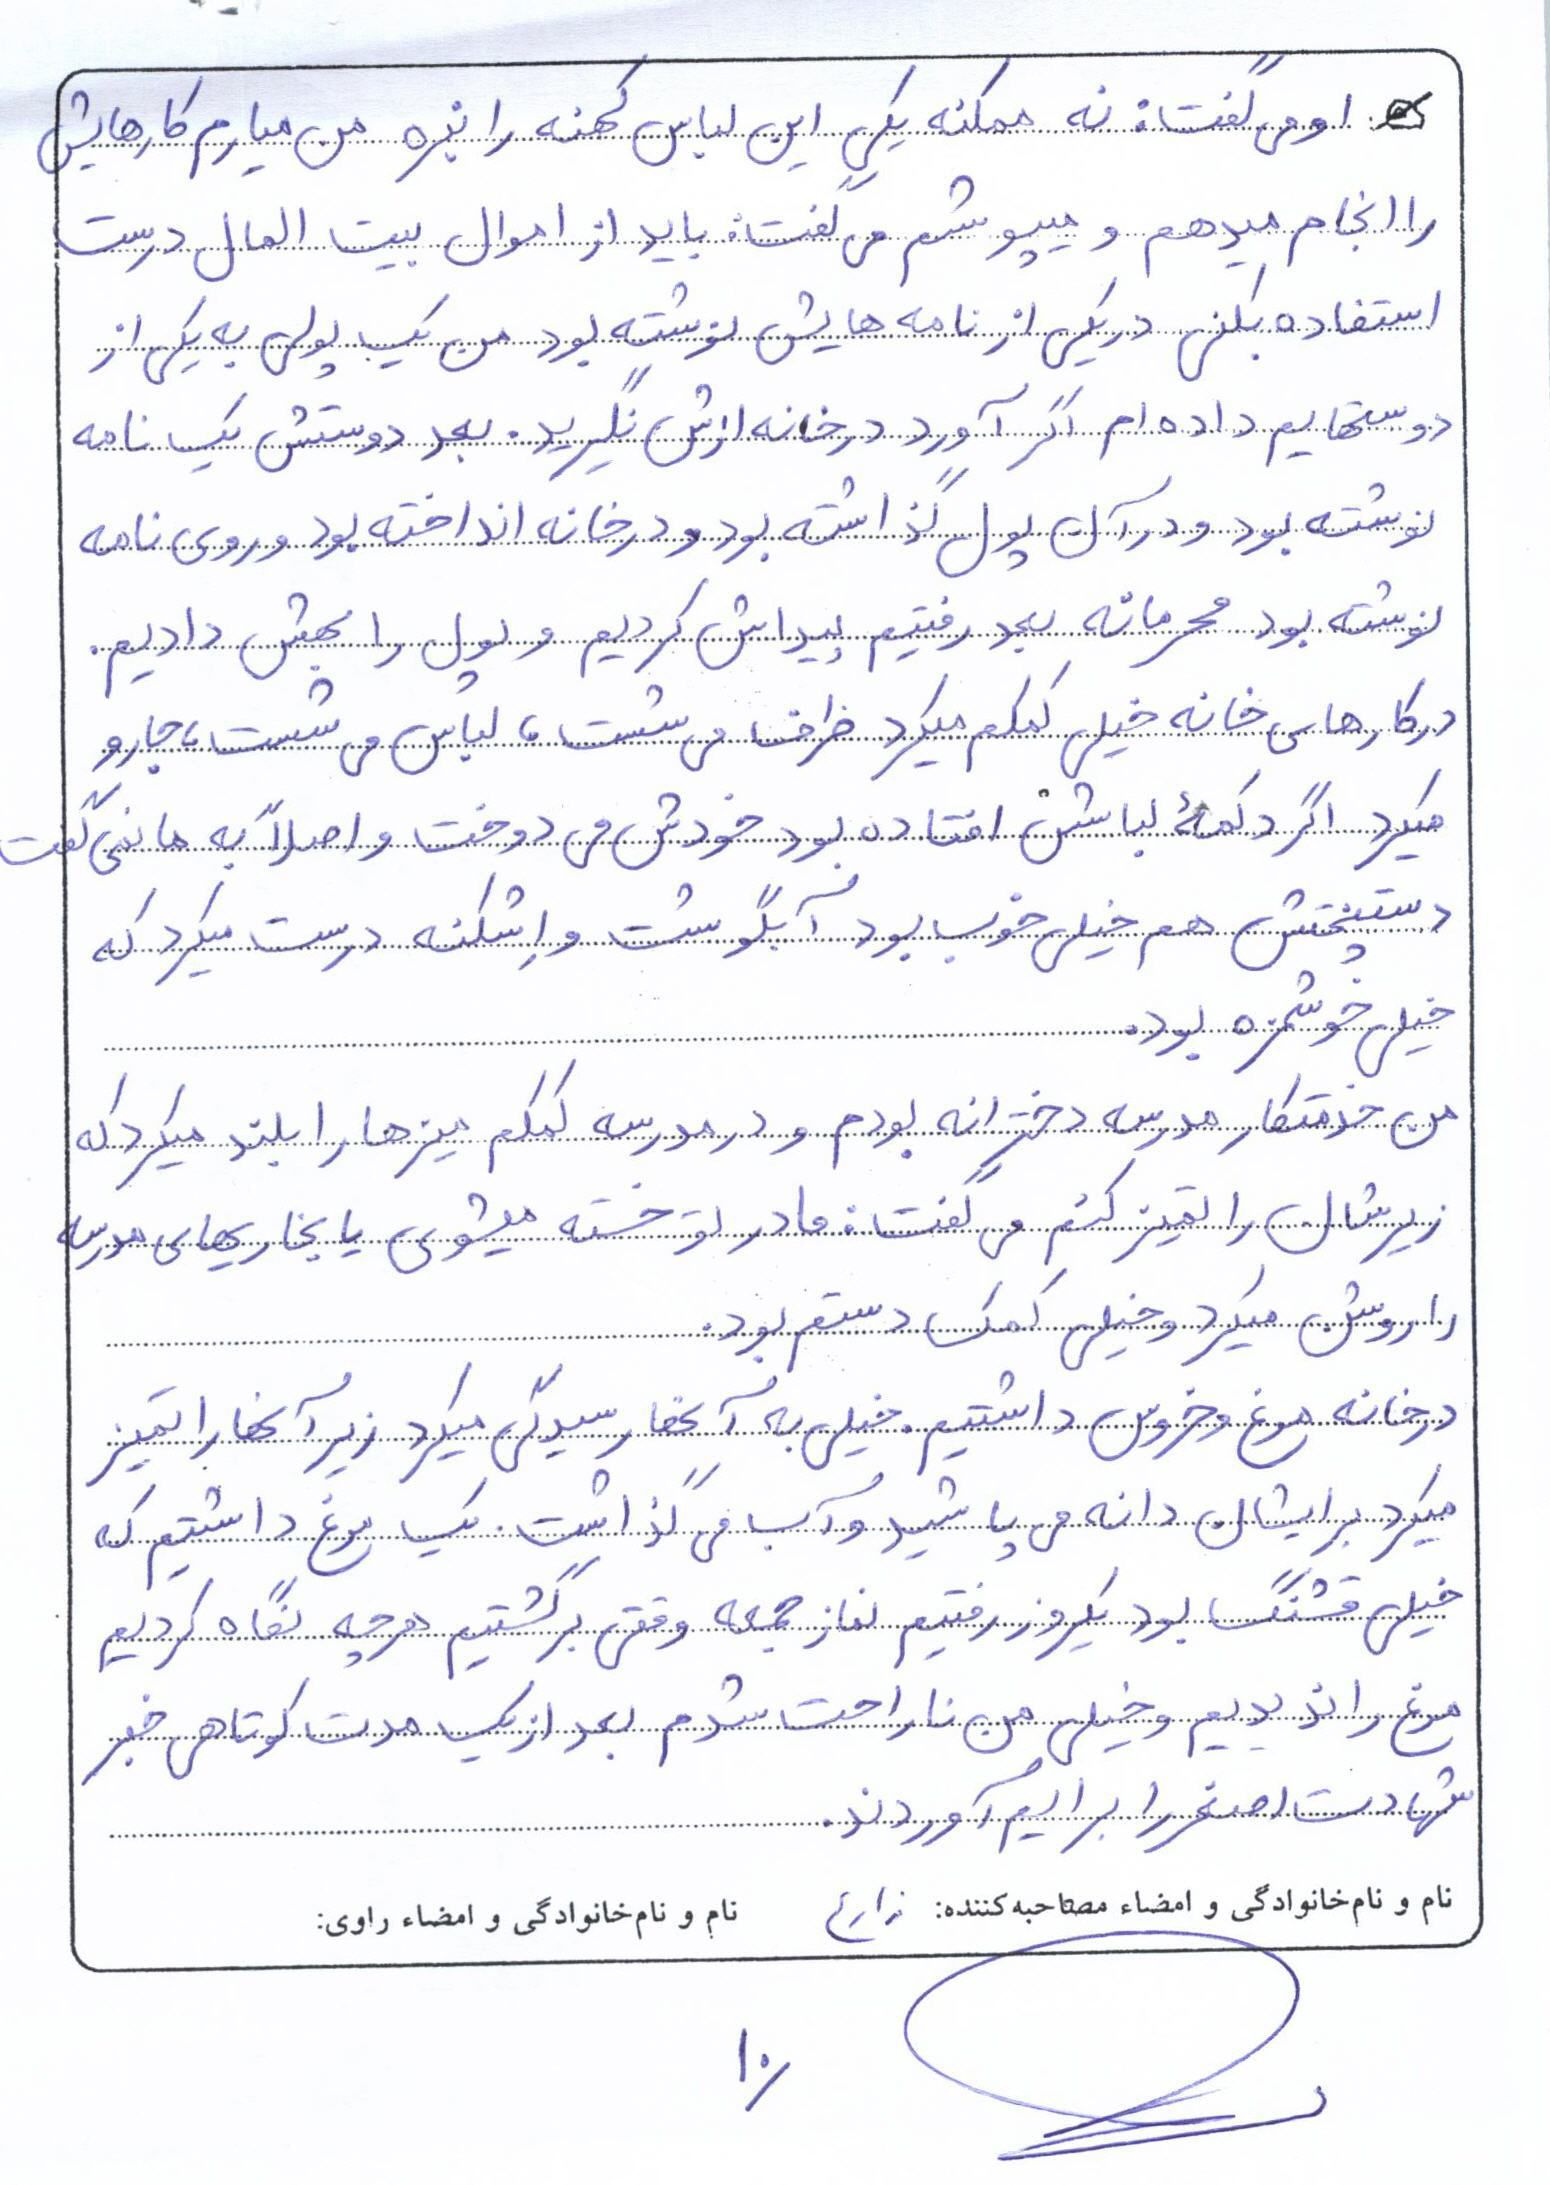 او می گفت: نه ممکنه یکی این لباس کهنه را نبره من میارم کارهایش
را انجام میدهم و میپوشم می گفت: باید از اموال بیت المال درست
استفاده بکنی در یکی از نامه هایش نوشته بود من یک پولی به یکی از
دوستهایم داده ام اگر آورد در خانه ازش نگیرید. بعد دوستش یک نامه
نوشته بود و در آن پول گذاشته بود و در خانه انداخته بود و روی نامه
نوشته بود محرمانه بعد رفتیم پیداش کردیم و پول را بهش دادیم.
در کارهای خانه خیلی کمکم میکرد ظرف می شست، لباس می شست، جارو
میکرد اگر دکمهٔ لباسش افتاده بود خودش می دوخت و اصلاً به ما نمی گفت
دستپختش هم خیلی خوب بود آبگوشت و اِشکنه درست میکرد که
خیلی خوشمزه بود.
من خدمتکار مدرسه دخترانه بودم و در مدرسه کمکم میزها را بلند میکرد که
زیرشان را تمیز کنم می گفت: مادر تو خسته میشوی یا بخاریهای مدرسه
را روشن میکرد و خیلی کمک دستم بود.
در خانه مرغ و خروس داشتیم. خیلی به آنها رسیدگی میکرد زیر آنها را تمیز
میکرد برایشان دانه می پاشید و آب می گذاشت. یک مرغ داشتیم که
خیلی قشنگ بود یکروز رفتیم نماز جمعه وقتی برگشتیم هرچه نگاه کردیم
مرغ را ندیدیم و خیلی من ناراحت شدم بعد از یک مدت کوتاهی خبر
شهادت اصغر را برایم آوردند.
نام و نام‌خانوادگی و امضاء مصاحبه‌کننده: زارع نام و نام‌خانوادگی و امضاء راوی:
۱۰